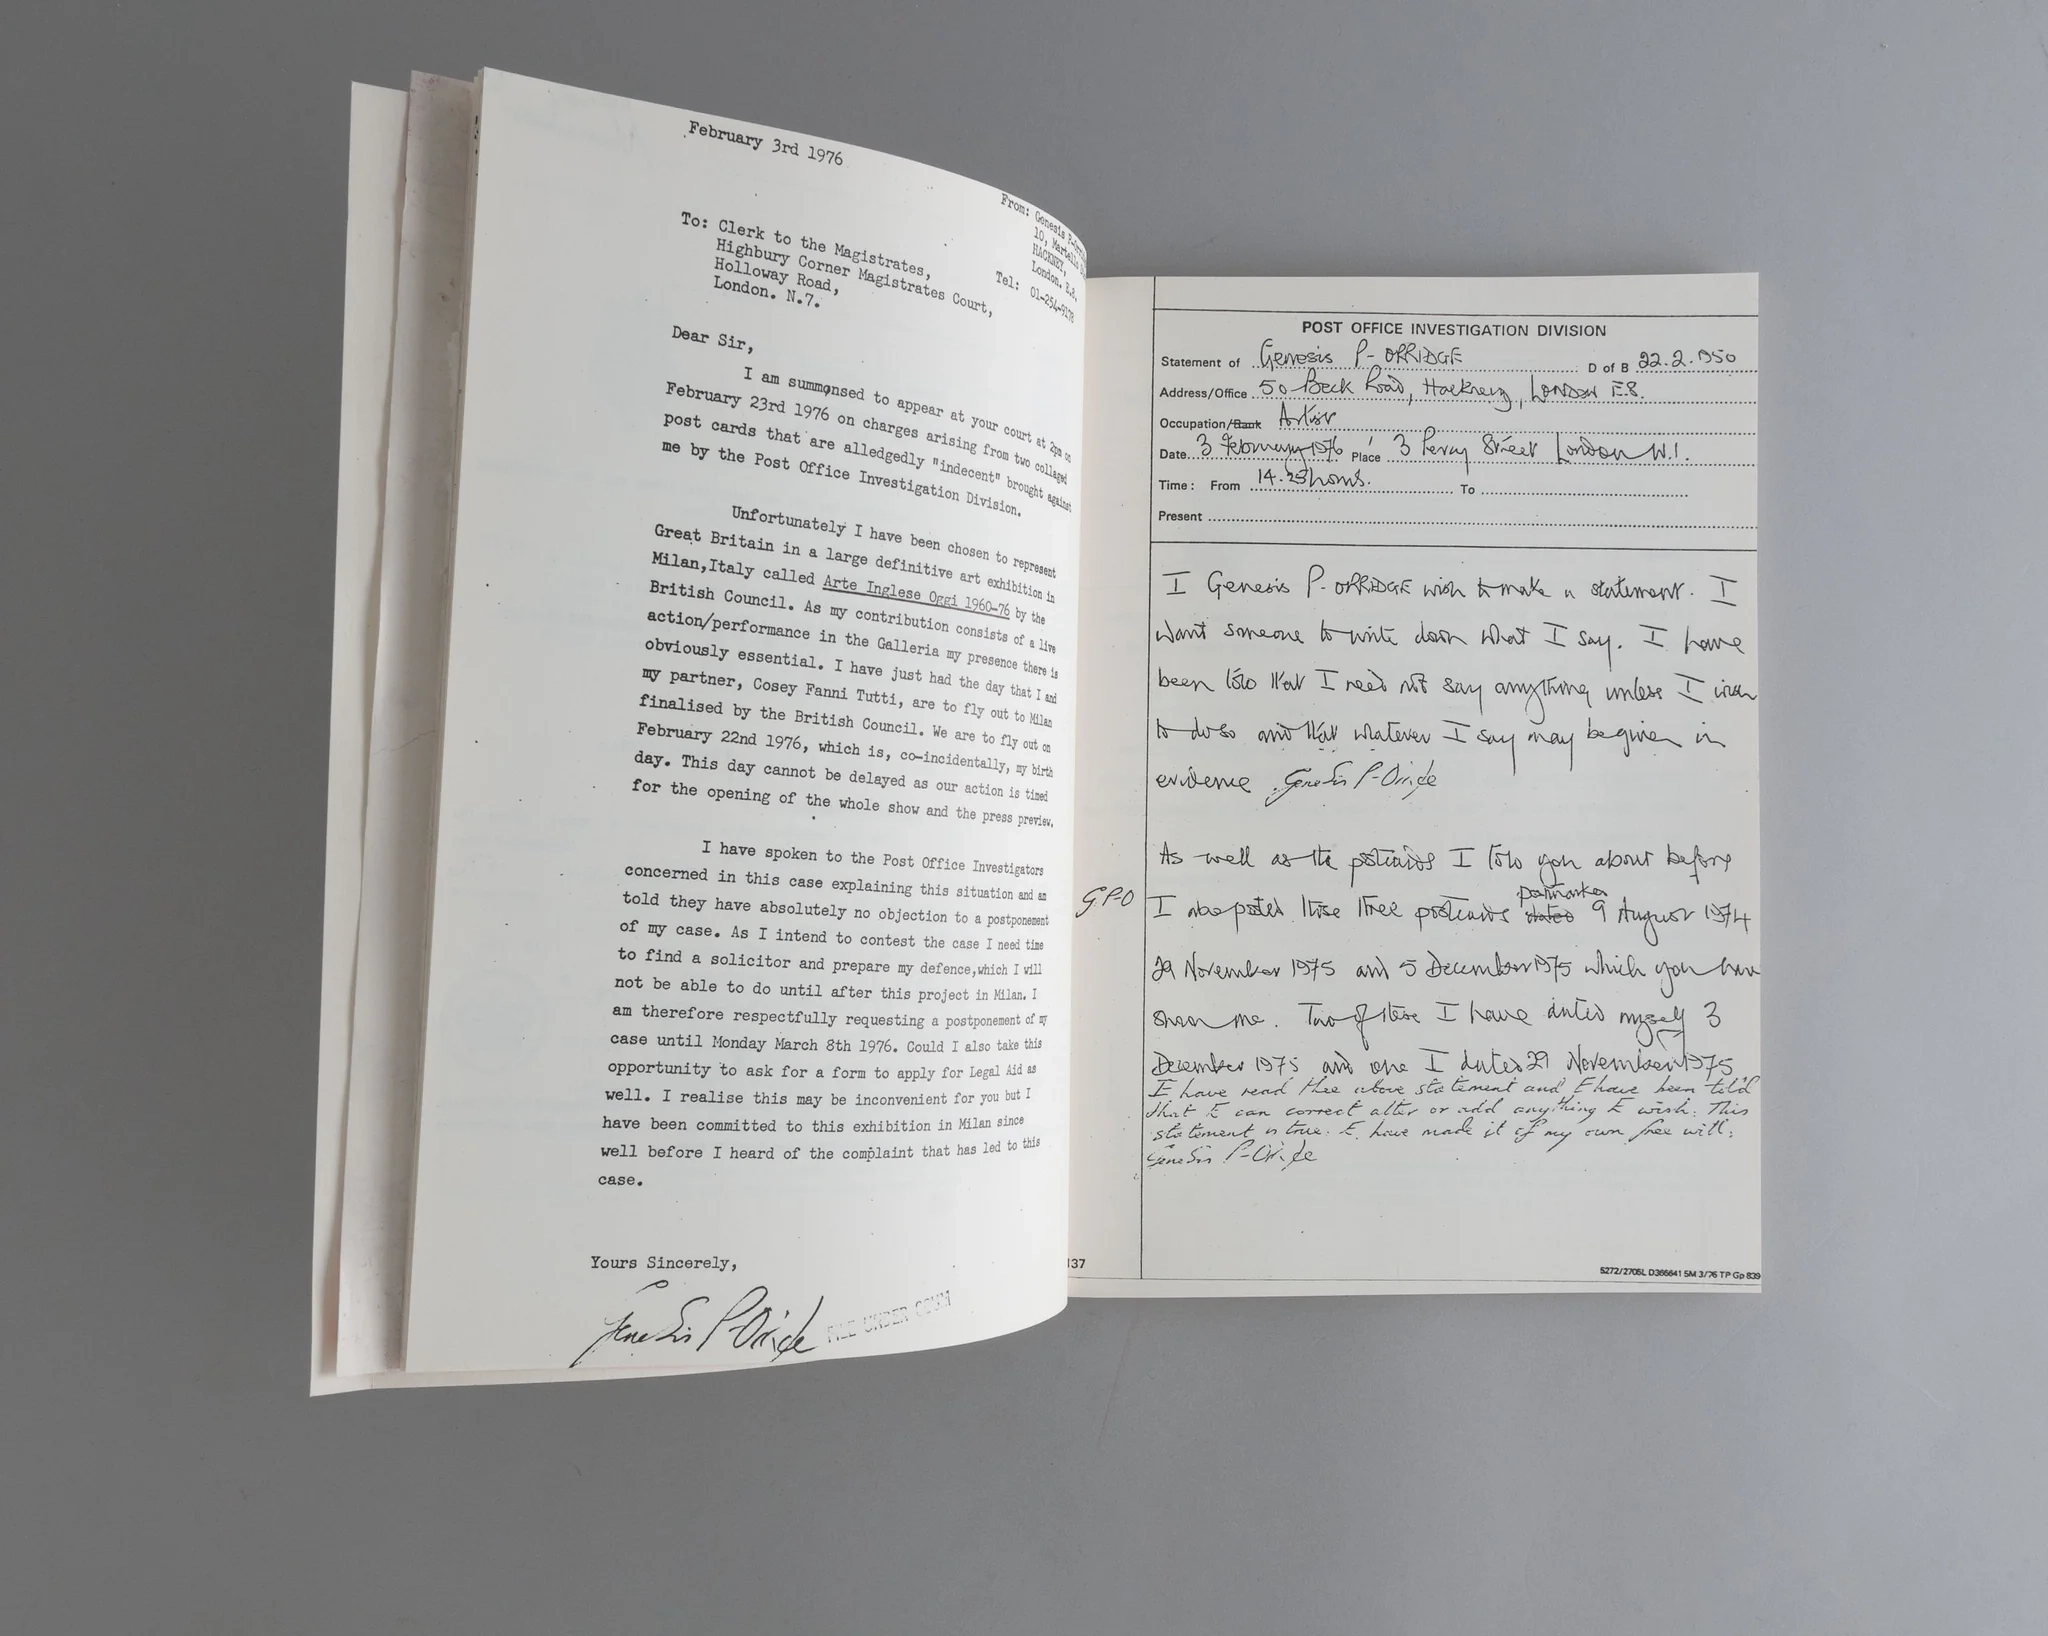 February 3rd 1976
From: Genesis P-Orri
10, Martello St
HACKNEY,
London. E.8.
Tel: 01-254-9178
To: Clerk to the Magistrates,
Highbury Corner Magistrates Court,
Holloway Road,
London. N.7.
Dear Sir,
I am summonsed to appear at your court at 2pm on
February 23rd 1976 on charges arising from two collaged
post cards that are alledgedly "indecent" brought against
me by the Post Office Investigation Division.
Unfortunately I have been chosen to represent
Great Britain in a large definitive art exhibition in
Milan,Italy called Arte Inglese Oggi 1960-76 by the
British Council. As my contribution consists of a live
action/performance in the Galleria my presence there is
obviously essential. I have just had the day that I and
my partner, Cosey Fanni Tutti, are to fly out to Milan
finalised by the British Council. We are to fly out on
February 22nd 1976, which is, co-incidentally, my birth
day. This day cannot be delayed as our action is timed
for the opening of the whole show and the press preview.
I have spoken to the Post Office Investigators
concerned in this case explaining this situation and am
told they have absolutely no objection to a postponement
of my case. As I intend to contest the case I need time
to find a solicitor and prepare my defence,which I will
not be able to do until after this project in Milan. I
am therefore respectfully requesting a postponement of my
case until Monday March 8th 1976. Could I also take this
opportunity to ask for a form to apply for Legal Aid as
well. I realise this may be inconvenient for you but I
have been committed to this exhibition in Milan since
well before I heard of the complaint that has led to this
case.
Yours Sincerely,
Genesis P-Orridge
FILE UNDER COUM
137
POST OFFICE INVESTIGATION DIVISION
Statement of Genesis P-ORRIDGE D of B 22.2.1950
Address/Office 50 Beck Road, Hackney, LONDON E.8.
Occupation/Rank Artist
Date 3 February 1976 Place 3 Percy Street London W.1.
Time: From 14.25 hours. To
Present
I Genesis P-ORRIDGE wish to make a statement. I
want someone to write down what I say. I have
been told that I need not say anything unless I wish
to do so and that whatever I say may be given in
evidence Genesis P-Orridge
As well as the postcards I told you about before
GPO I posted these three postcards dated postmarked 9 August 1974
29 November 1975 and 5 December 1975 which you have
shown me. Two of these I have dated myself 3
December 1975 and one I dated 29 November 1975
I have read thee above statement and E have been told
that E can correct alter or add anything E wish. This
statement is true. E have made it of my own free will.
Genesis P-Orridge
5272/2705L D366641 5M 3/76 TP Gp 839